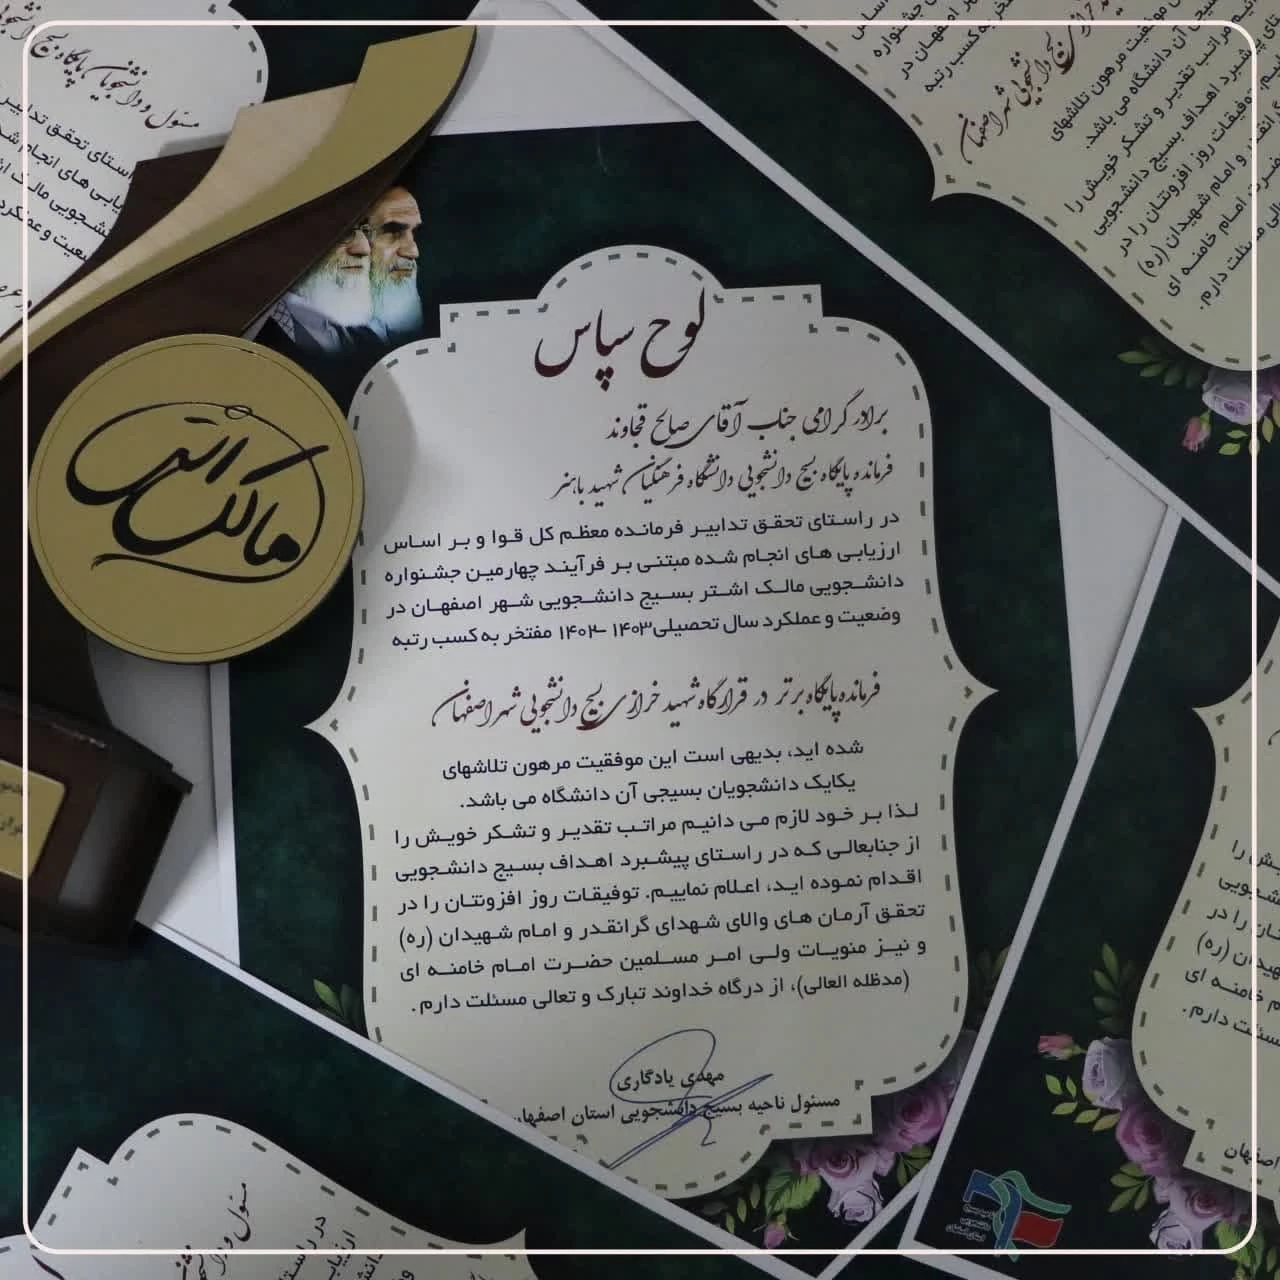 لوح سپاس
برادر گرامی جناب آقای صالح قجاوند
فرمانده پایگاه بسیج دانشجویی دانشگاه فرهنگیان شهید باهنر
در راستای تحقق تدابیر فرمانده معظم کل قوا و بر اساس
ارزیابی های انجام شده مبتنی بر فرآیند چهارمین جشنواره
دانشجویی مالک اشتر بسیج دانشجویی شهر اصفهان در
وضعیت و عملکرد سال تحصیلی ۱۴۰۳-۱۴۰۲ مفتخر به کسب رتبه
فرمانده پایگاه برتر در قرارگاه شهید خرازی بسیج دانشجویی شهر اصفهان
شده اید، بدیهی است این موفقیت مرهون تلاشهای
یکایک دانشجویان بسیجی آن دانشگاه می باشد.
لذا بر خود لازم می دانیم مراتب تقدیر و تشکر خویش را
از جنابعالی که در راستای پیشبرد اهداف بسیج دانشجویی
اقدام نموده اید، اعلام نماییم. توفیقات روز افزونتان را در
تحقق آرمان های والای شهدای گرانقدر و امام شهیدان (ره)
و نیز منویات ولی امر مسلمین حضرت امام خامنه ای
(مدظله العالی)، از درگاه خداوند تبارک و تعالی مسئلت دارم.
مهدی یادگاری
مسئول ناحیه بسیج دانشجویی استان اصفهان
مالک اشتر
مسئول و دانشجویان پایگاه بسیج
بسیج دانشجویی شهر اصفهان
موفقیت مرهون تلاشهای
آن دانشگاه می باشد.
مراتب تقدیر و تشکر خویش را
پیشبرد اهداف بسیج دانشجویی
توفیقات روز افزونتان را در
گرانقدر و امام شهیدان (ره)
حضرت امام خامنه ای
مسئلت دارم.
ناحیه بسیج
دانشجویی
استان اصفهان